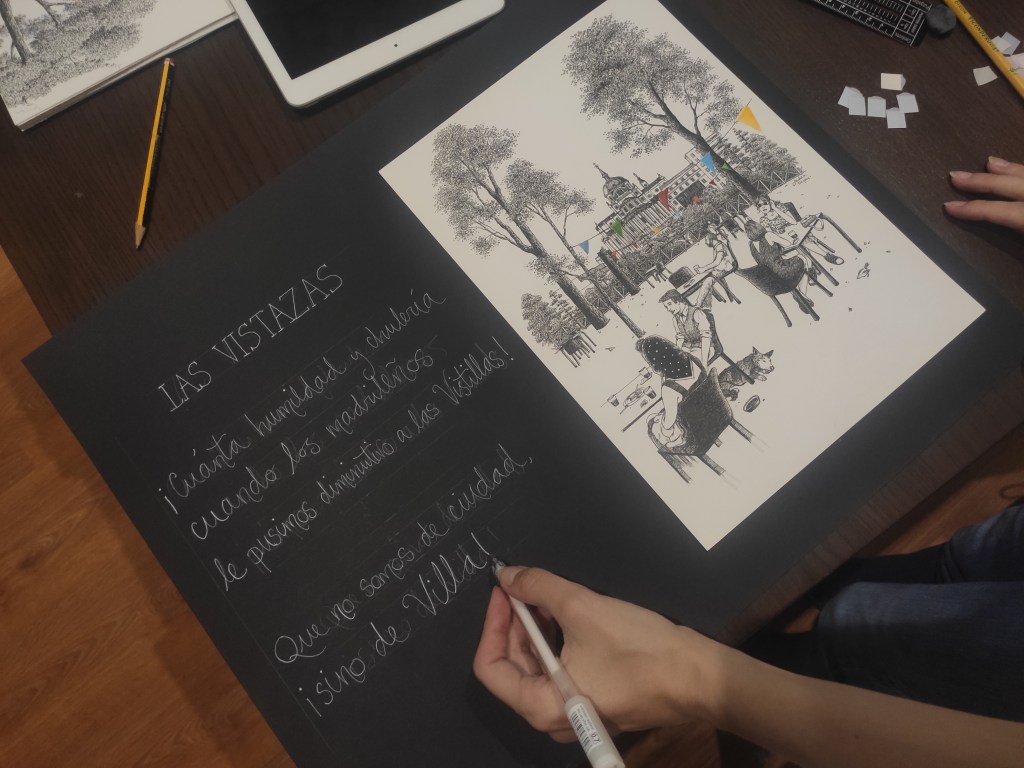 LAS VISTAZAS
¡Cuánta humildad y chulería
cuando los madrileños
le pusimos diminutivo a las Vistillas!
Que no somos de ciudad,
¡sinos de Villa!